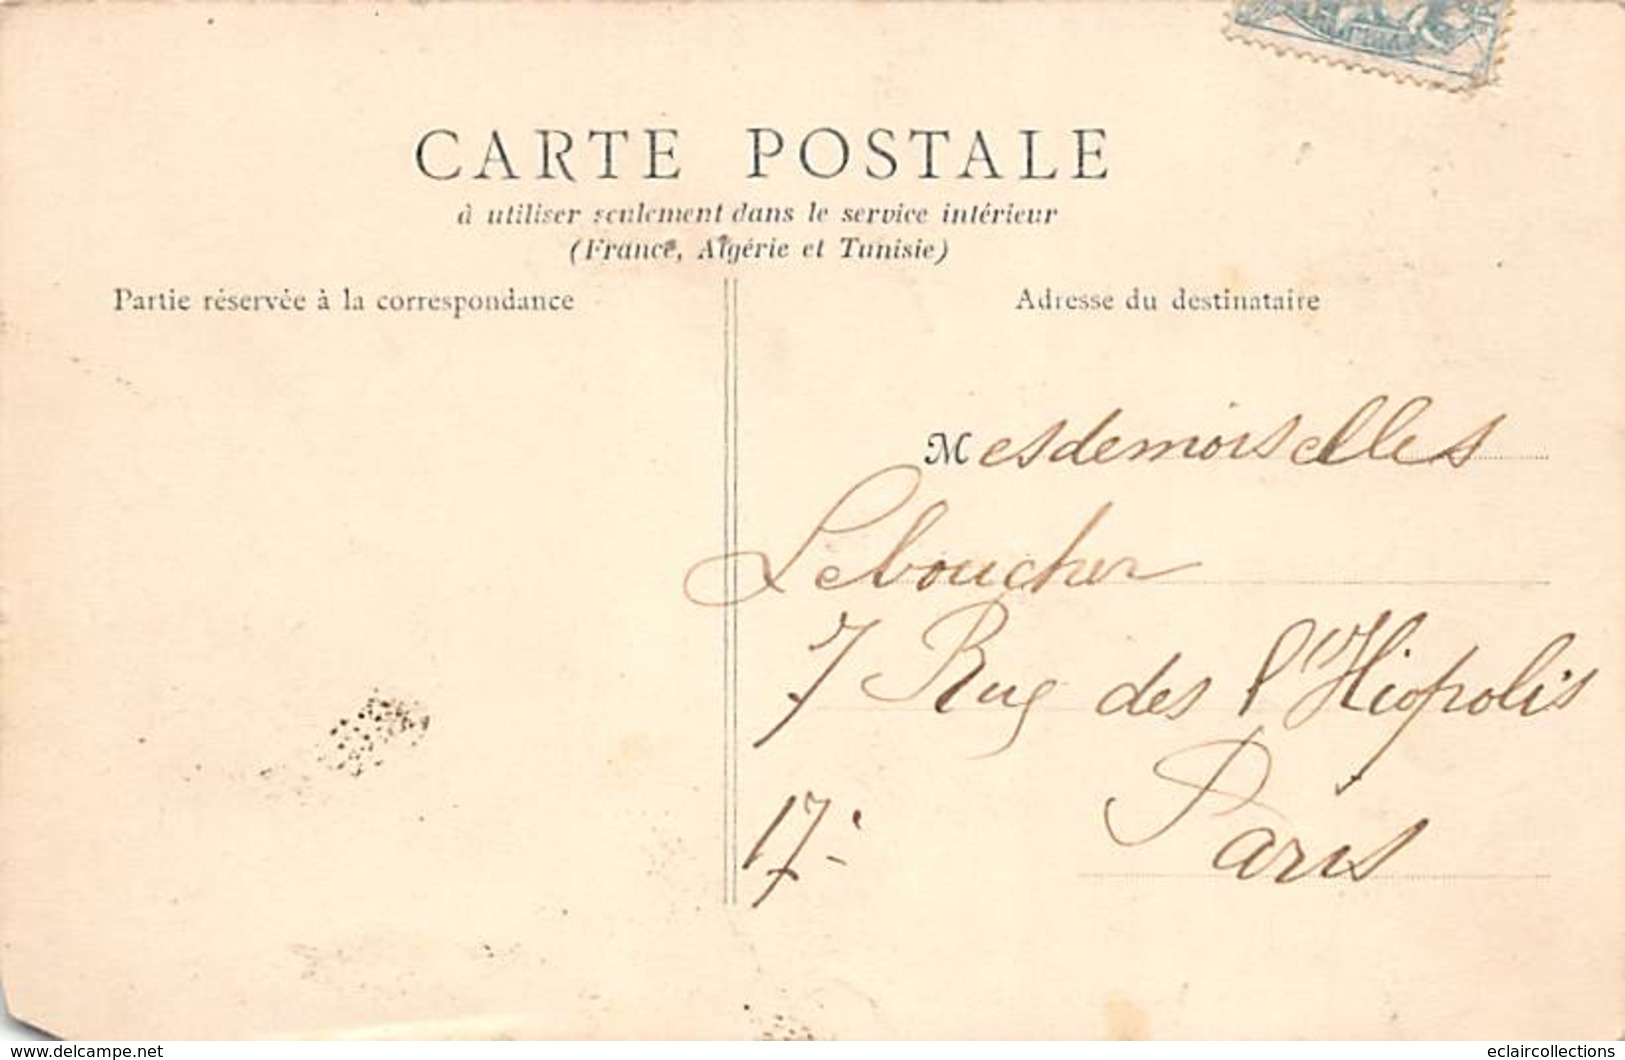 CARTE POSTALE
à utiliser seulement dans le service intérieur
(France, Algérie et Tunisie)
Partie réservée à la correspondance
Adresse du destinataire
Mesdemoiselles
Leboucher
7 Rue des l'Hiopolis
17e
Paris
www.delcampe.net
eclaircollections